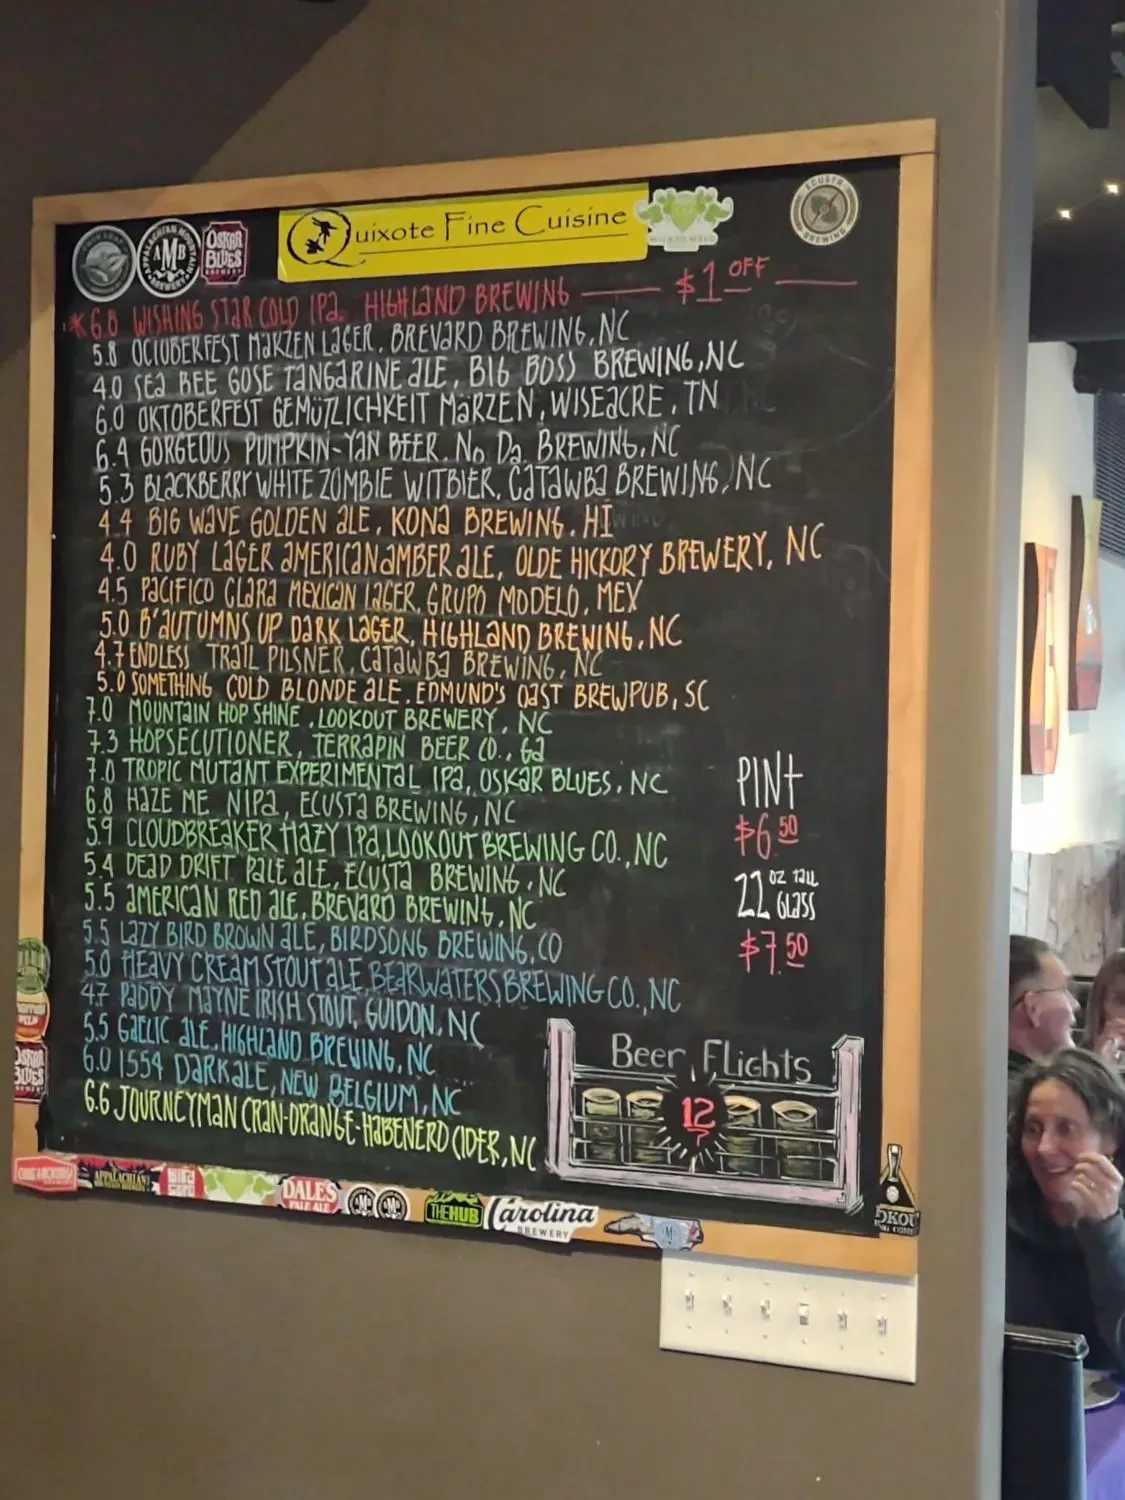 APPALACHIAN MOUNTAIN
AMB
BREWERY
OSKAR
BLUES
BREWERY
Quixote Fine Cuisine
WICKED WEED
ECUSTA
BREWING
* 6.8 WISHING STAR COLD IPA. HIGHLAND BREWING —— $1 OFF ——
5.8 OCTOBERFEST MARZEN LAGER, BREVARD BREWING, NC
4.0 SEA BEE GOSE TANGARINE ALE, BIG BOSS BREWING, NC
6.0 OKTOBERFEST GEMÜTLICHKEIT MÄRZEN, WISEACRE, TN
6.4 GORGEOUS PUMPKIN-YAN BEER. No Da. BREWING, NC
5.3 BLACKBERRY WHITE ZOMBIE WITBIER, CATAWBA BREWING, NC
4.4 BIG WAVE GOLDEN ALE, KONA BREWING, HI
4.0 RUBY LAGER AMERICAN AMBER ALE, OLDE HICKORY BREWERY, NC
4.5 PACIFICO CLARA MEXICAN LAGER, GRUPO MODELO, MEX
5.0 B'AUTUMNS UP DARK LAGER, HIGHLAND BREWING, NC
4.7 ENDLESS TRAIL PILSNER, CATAWBA BREWING, NC
5.0 SOMETHING COLD BLONDE ALE, EDMUND'S OAST BREWPUB, SC
7.0 MOUNTAIN HOP SHINE, LOOKOUT BREWERY, NC
7.3 HOPSECUTIONER, TERRAPIN BEER CO., GA
7.0 TROPIC MUTANT EXPERIMENTAL IPA, OSKAR BLUES, NC
6.8 HAZE ME NIPA, ECUSTA BREWING, NC
5.9 CLOUDBREAKER HAZY IPA, LOOKOUT BREWING CO., NC
5.4 DEAD DRIFT PALE ALE, ECUSTA BREWING, NC
5.5 AMERICAN RED ALE, BREVARD BREWING, NC
5.5 LAZY BIRD BROWN ALE, BIRDSONG BREWING, CO
5.0 HEAVY CREAM STOUT ALE, BEARWATERS BREWING CO., NC
4.7 PADDY MAYNE IRISH STOUT, GUIDON, NC
5.5 GAELIC ALE, HIGHLAND BREWING, NC
6.0 1554 DARK ALE, NEW BELGIUM, NC
6.6 JOURNEYMAN CRAN-ORANGE-HABENERO CIDER, NC
PINT
$6.50
22 OZ TALL GLASS
$7.50
Beer Flights
12
OSKAR
BLUES
APPALACHIAN
DALE'S
PALE ALE
THE HUB
Carolina
BREWERY